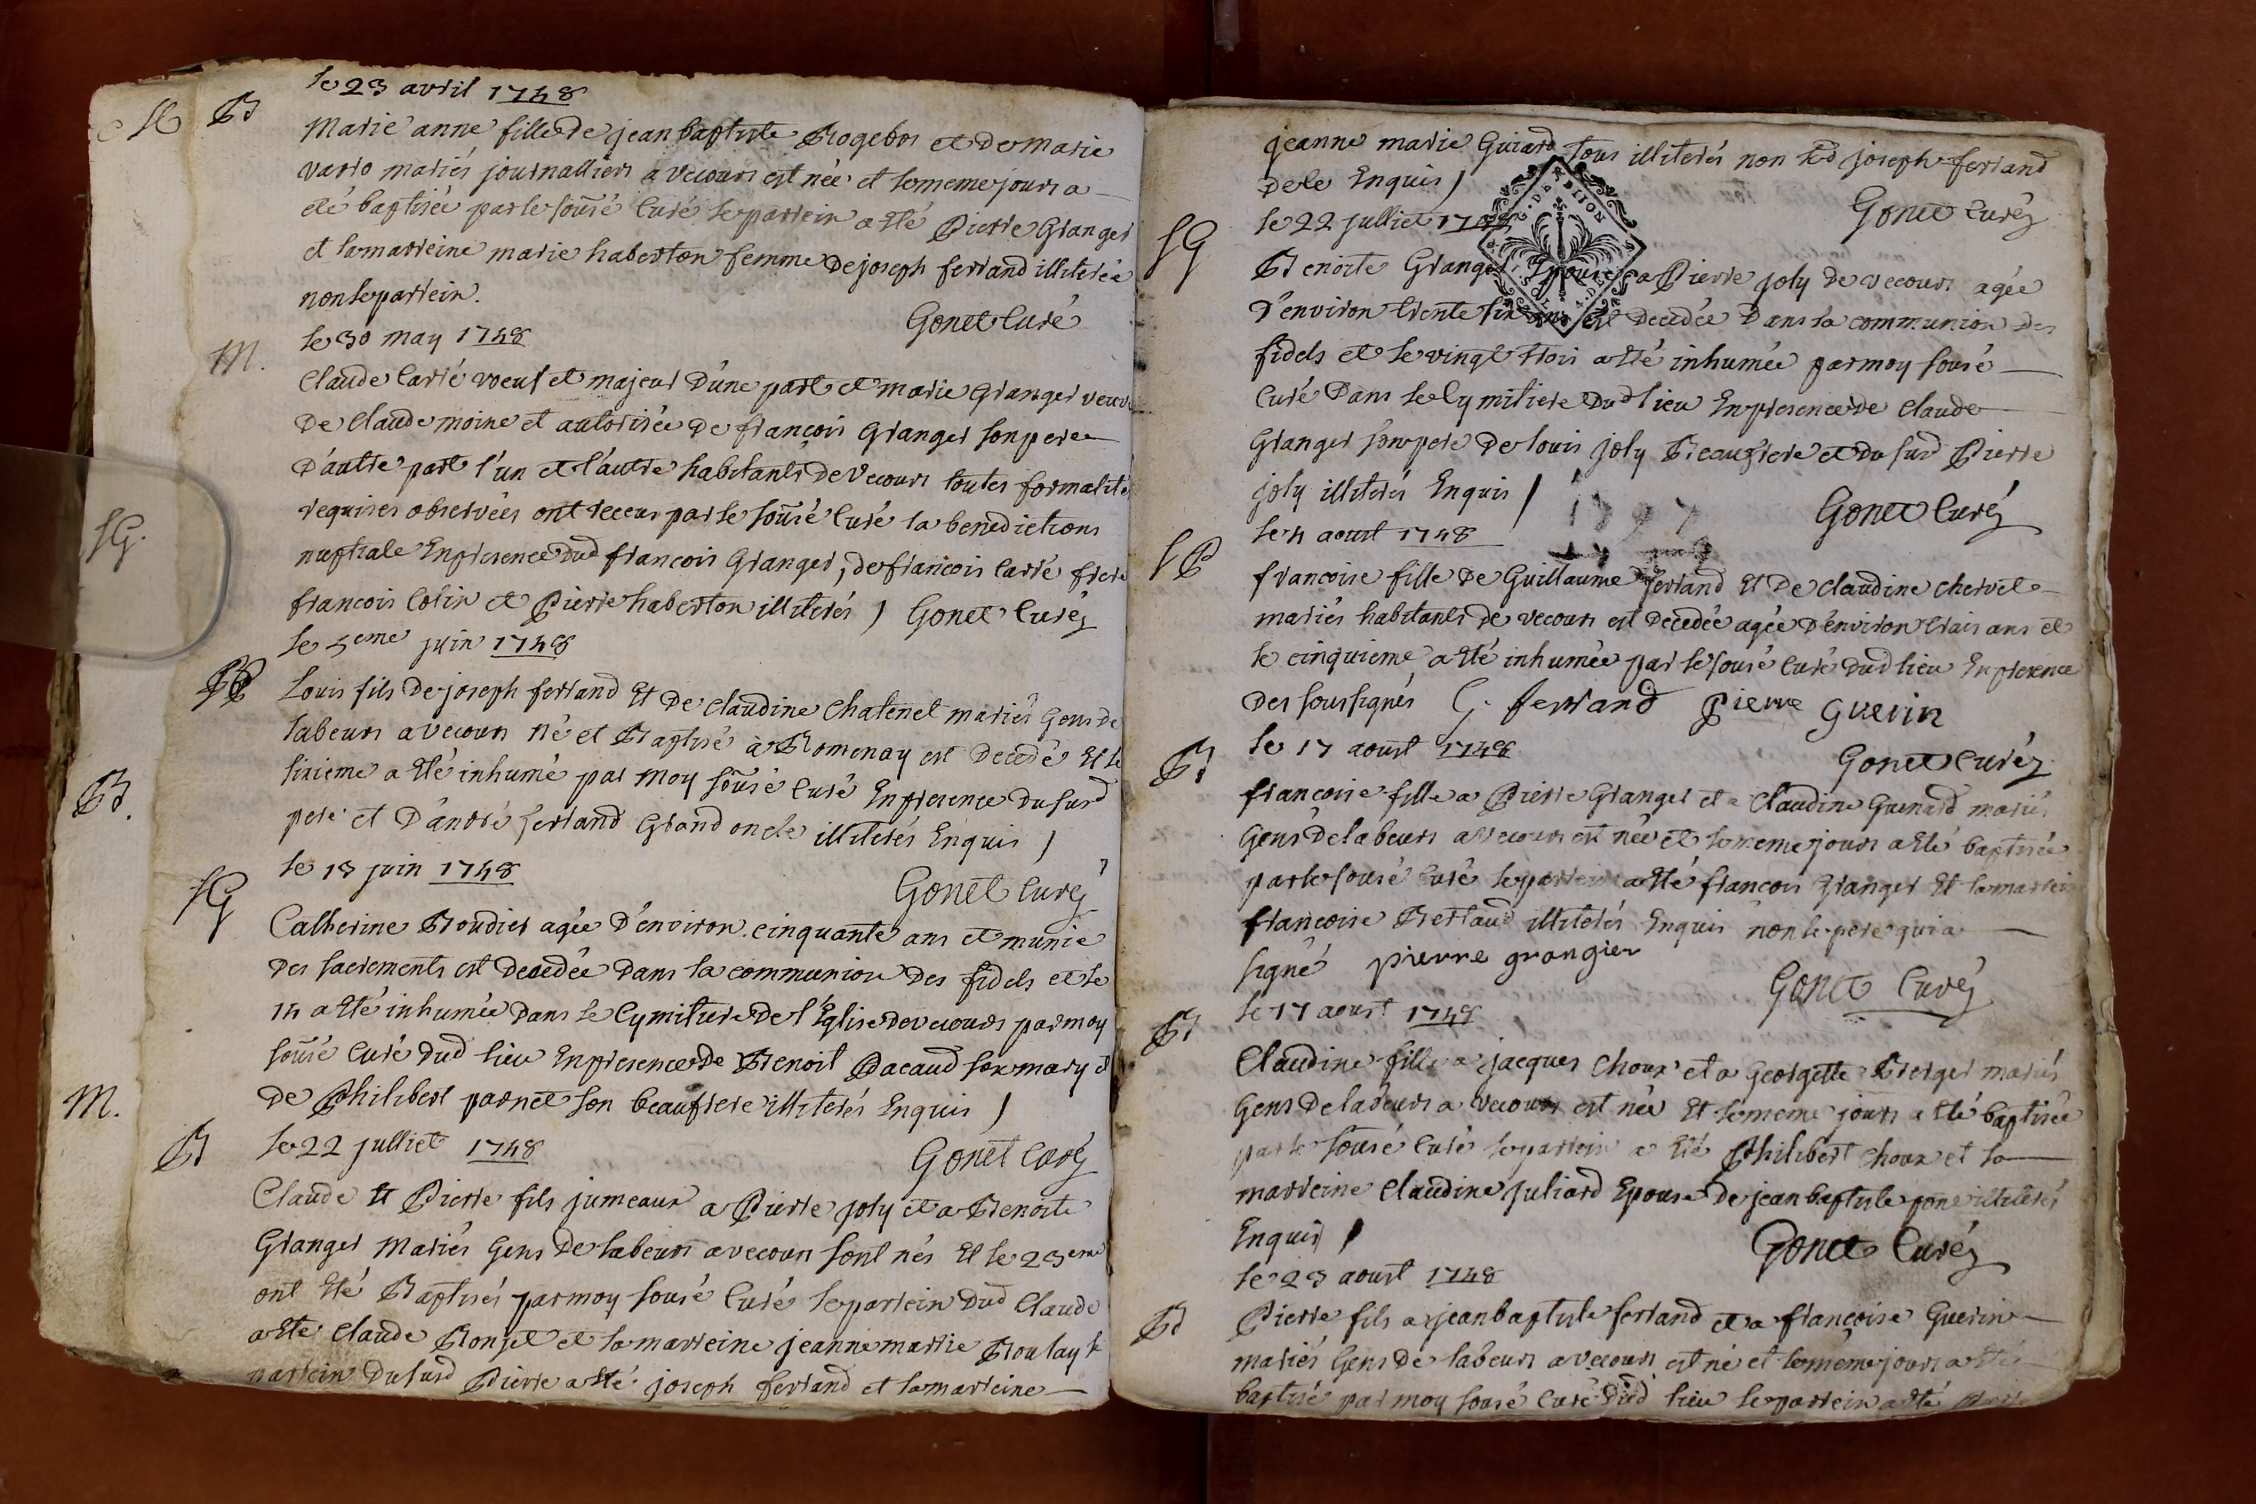 le 23 avril 1748
B
Marie anne fille de jean baptiste Rogebos et de marie
mariés journalliers a vecours est née et le meme jours a
eté baptisée par le sousé Curé le parrein a eté Pierre Granger
et la marreine marie haberton femme de joseph ferrand illiterée
non le parrein.
Gonet Curé
le 30 may 1748
M.
Claude Carré voeuf et majeur d'une part et marie Granger veuve
de Claude moine et autorisée de françois Granger son pere
d'autre part l'un et l'autre habitants de Vecours toutes formalités
requises observées ont receus par le sousé Curé la benedictions
nuptiale En presence dud françois Granger, de françois Carré frere
francois Colin et Pierre haberton illiterés) Gonet Curé
le 5eme juin 1748
Louis fils de joseph ferrand Et de claudine Chatenet mariés Gens de
labeurs a vecours né et Baptisé à Romenay est decedé Et le
sixieme a eté inhumé par moy sousé Curé En presence du susd
pere et D'andré ferrand Grand oncle illiterés Enquis)
le 13 juin 1748
Gonet Curé
SG
Catherine Boudier agée d'environ cinquante ans et munie
des sacrements est decedée dans la communion des fidels et le
14 a eté inhumée dans le Cymitiere de l'Eglise de vecours par moy
sousé Curé dud lieu En presence de Benoit Pacaud son mary et
de Philibert parnet son beaufrere illiterés Enquis)
B
le 22 julliet 1748
Gonet Curé
Claude Et Pierre fils jumeaux a Pierre joly et a Benoite
Granger Mariés Gens de labeurs a vecours sont nés Et le 23eme
ont Eté Baptisés par moy sousé Curé le parrein dud Claude
a eté Claude Ronjet et la marreine jeanne marrie Roulay le
parrein du susd Pierre a eté joseph ferrand et la marreine
SG.
B.
M.
jeanne marie Guiard tous illiterés non led joseph ferrand
de ce Enquis)
Gonet Curé
le 22 julliet 1748
SG
Benoite Granger Epouse a Pierre joly de vecours agée
d'environ trente six ans est decedée dans la communion des
fidels et le vingt trois a eté inhumée par moy sousé
Curé dans le Cymitiere dud lieu En presence de Claude
Granger son pere de louis joly Beaufrere et du susd Pierre
joly illiterés Enquis)
Gonet Curé
le 4 aoust 1748
SP
francoise fille de Guillaume ferrand Et de claudine chervet
mariés habitants de vecours est decedée agée d'environ trois ans et
le cinquieme a eté inhumée par le sousé Curé dud lieu En presence
des soussignés G. ferrand pierre guerin
le 17 aoust 1748
Gonet Curé
B
françoise fille a Pierre Granger et a Claudine Guenard mariés
Gens de labeurs a vecours est née et le meme jours a eté baptisée
par le sousé Curé le parrein a eté francois Granger Et la marrein
francoise Bertaud illiterés Enquis non le pere qui a
signé pierre grangier
Gonet Curé
le 17 aoust 1748
B
Claudine fille a jacques Choux et a Georgette Berger mariés
Gens de labeurs a vecours est née Et le meme jours a eté baptisée
par le sousé Curé le parrein a eté Philibert choux et la
marreine Claudine juliard Epouse de jean baptiste pone illiterés
Enquis)
Gonet Curé
le 23 aoust 1748
B
Pierre fils a jean baptiste ferrand et a françoise Guerin
mariés Gens de labeurs a vecours est né et le meme jours a eté
baptisé par moy sousé Curé dud lieu le parrein a eté